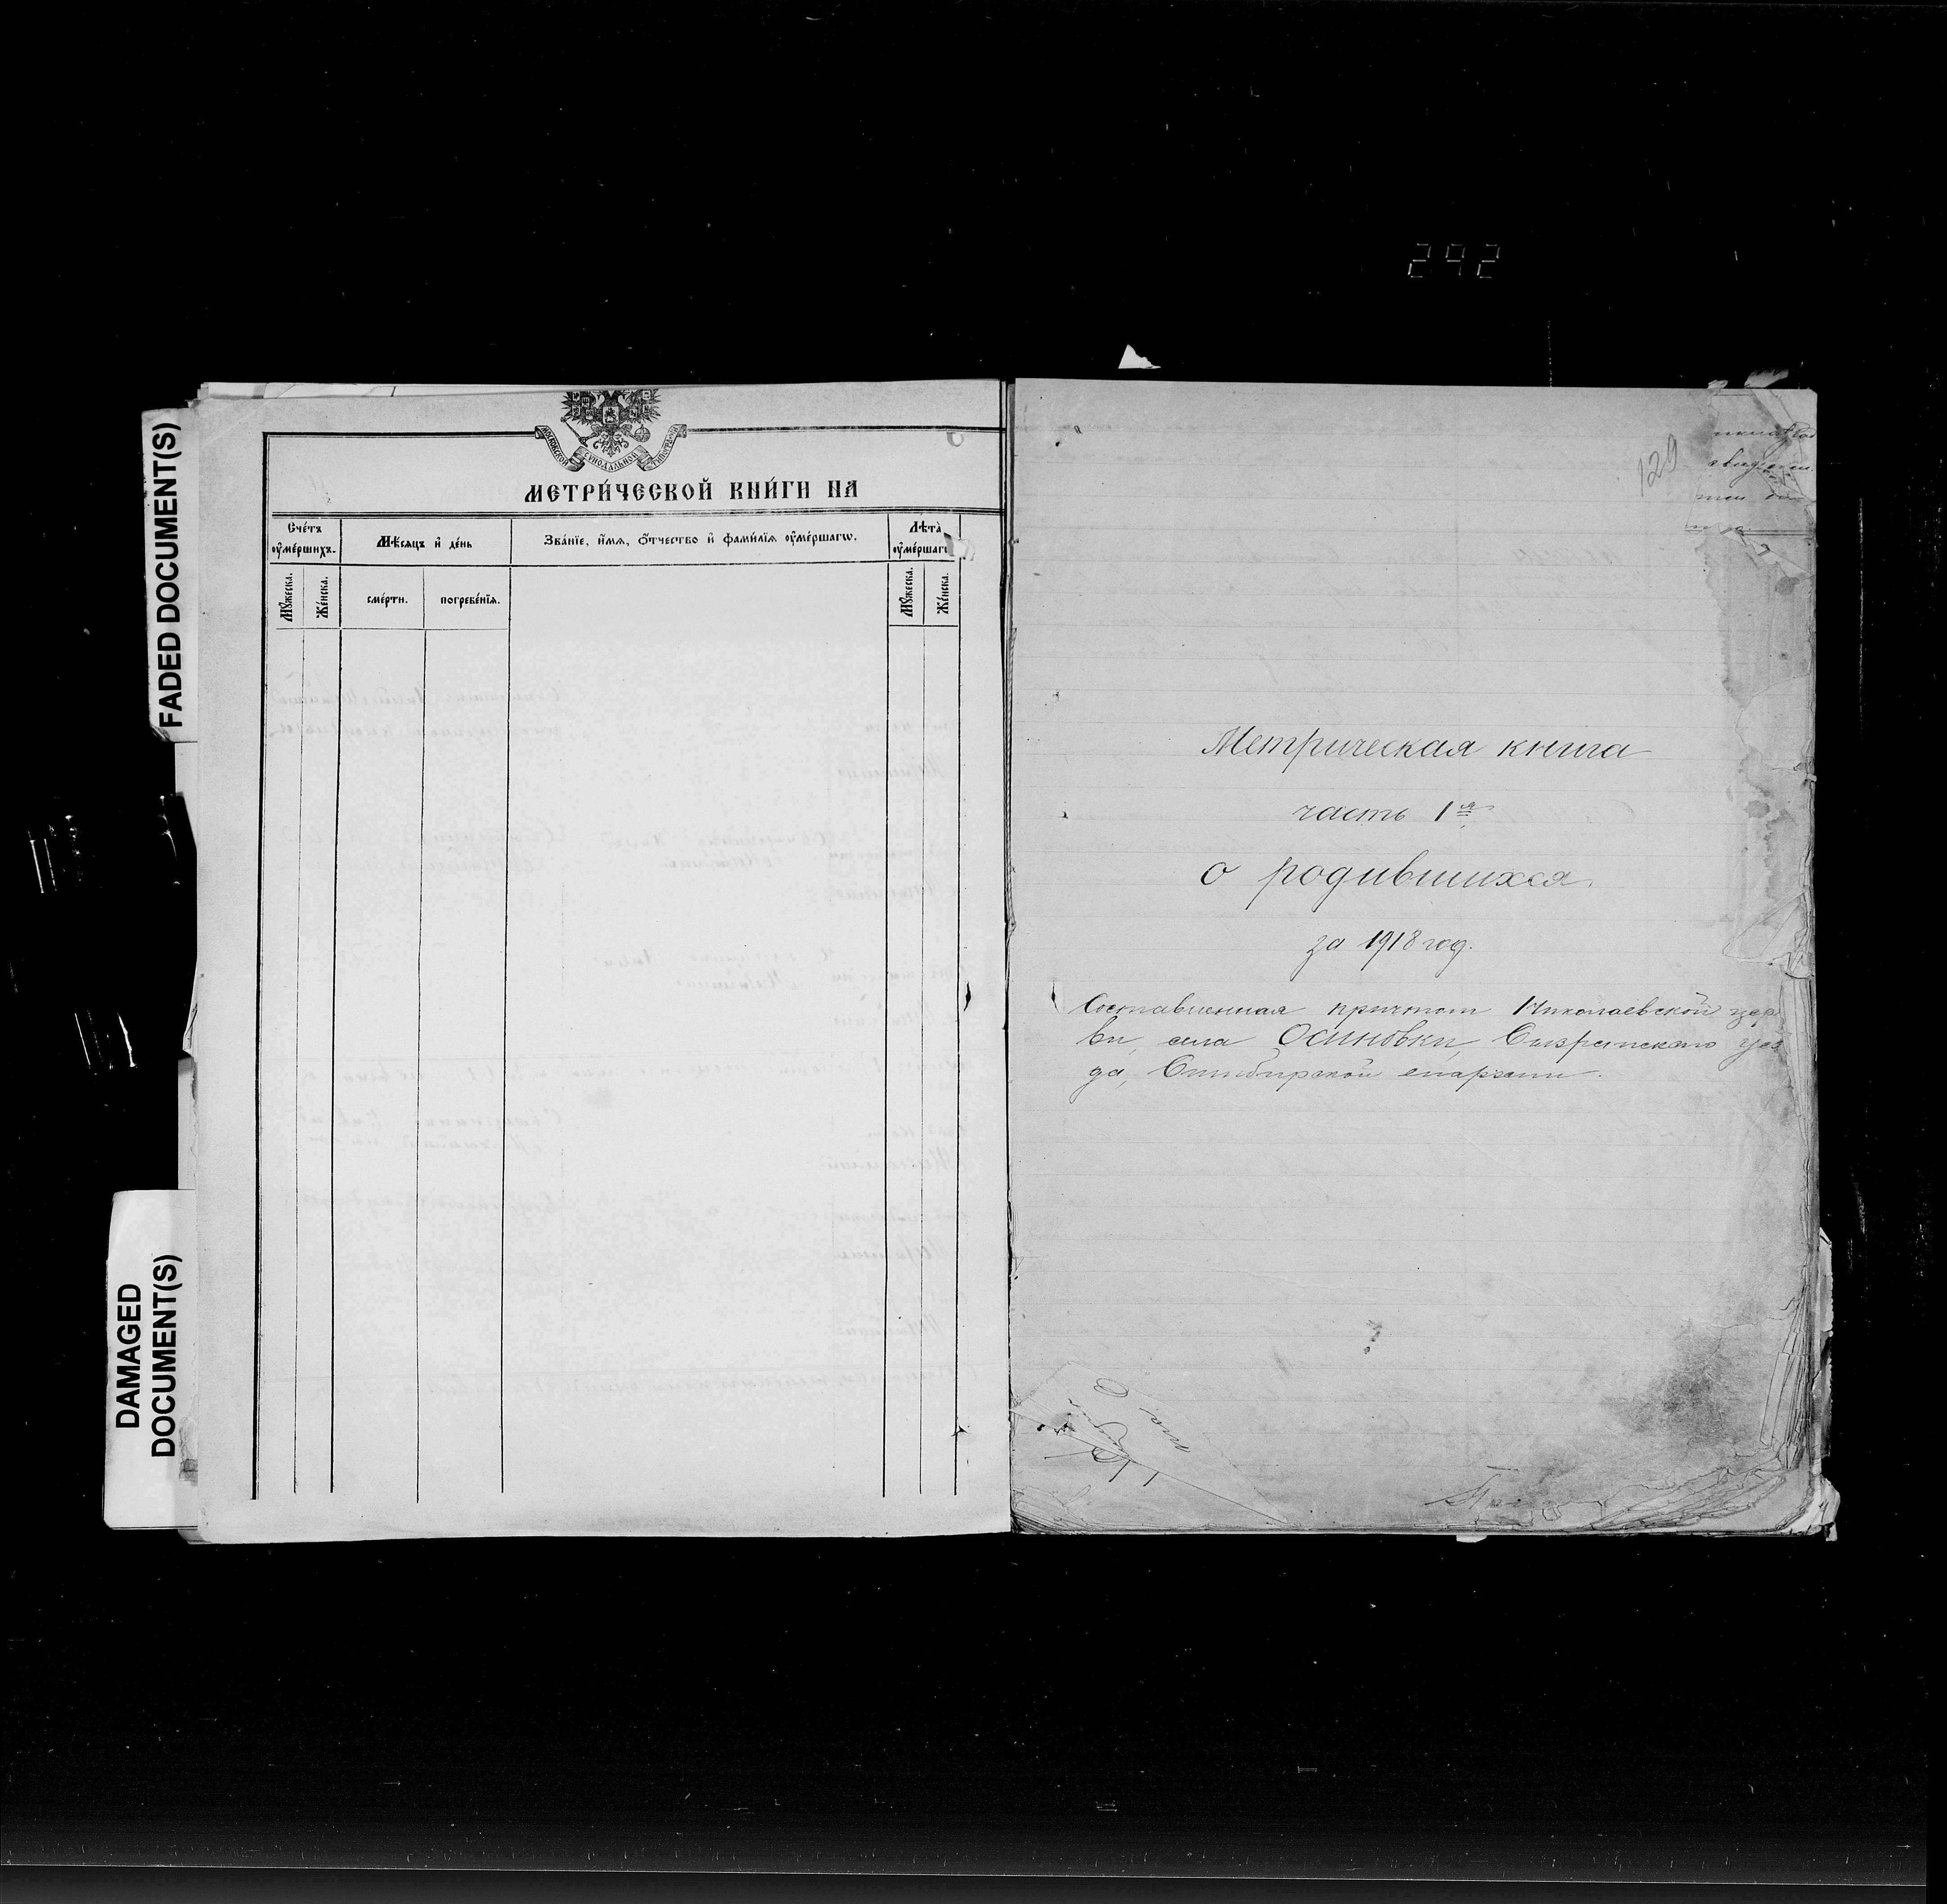 292
FADED DOCUMENT(S)
DAMAGED
DOCUMENT(S)
МОСКОВСКОЙ СѴНОДАЛЬНОЙ ТИПОГРАФІИ
МЕТРИ́ЧЕСКОЙ КНИ́ГИ НА
Сче́тъ оу҆ме́ршихъ.
Мѣ́сяцъ и҆ де́нь
Зва́нїе, и҆́мѧ, ѻ҆́тчество и҆ фами́лїѧ оу҆ме́ршагѡ.
Лѣ́та оу҆ме́ршаг
Мꙋ́жеска.
Же́нска.
сме́рти.
погребе́нїѧ.
Мꙋ́жеска.
Же́нска.
129
Метрическая книга
часть 1я
о родившихся.
за 1918 год.
Составленная причтом Николаевской цер
ви, села Осиновки, Сызранскаго уез
да, Симбирской епархии.